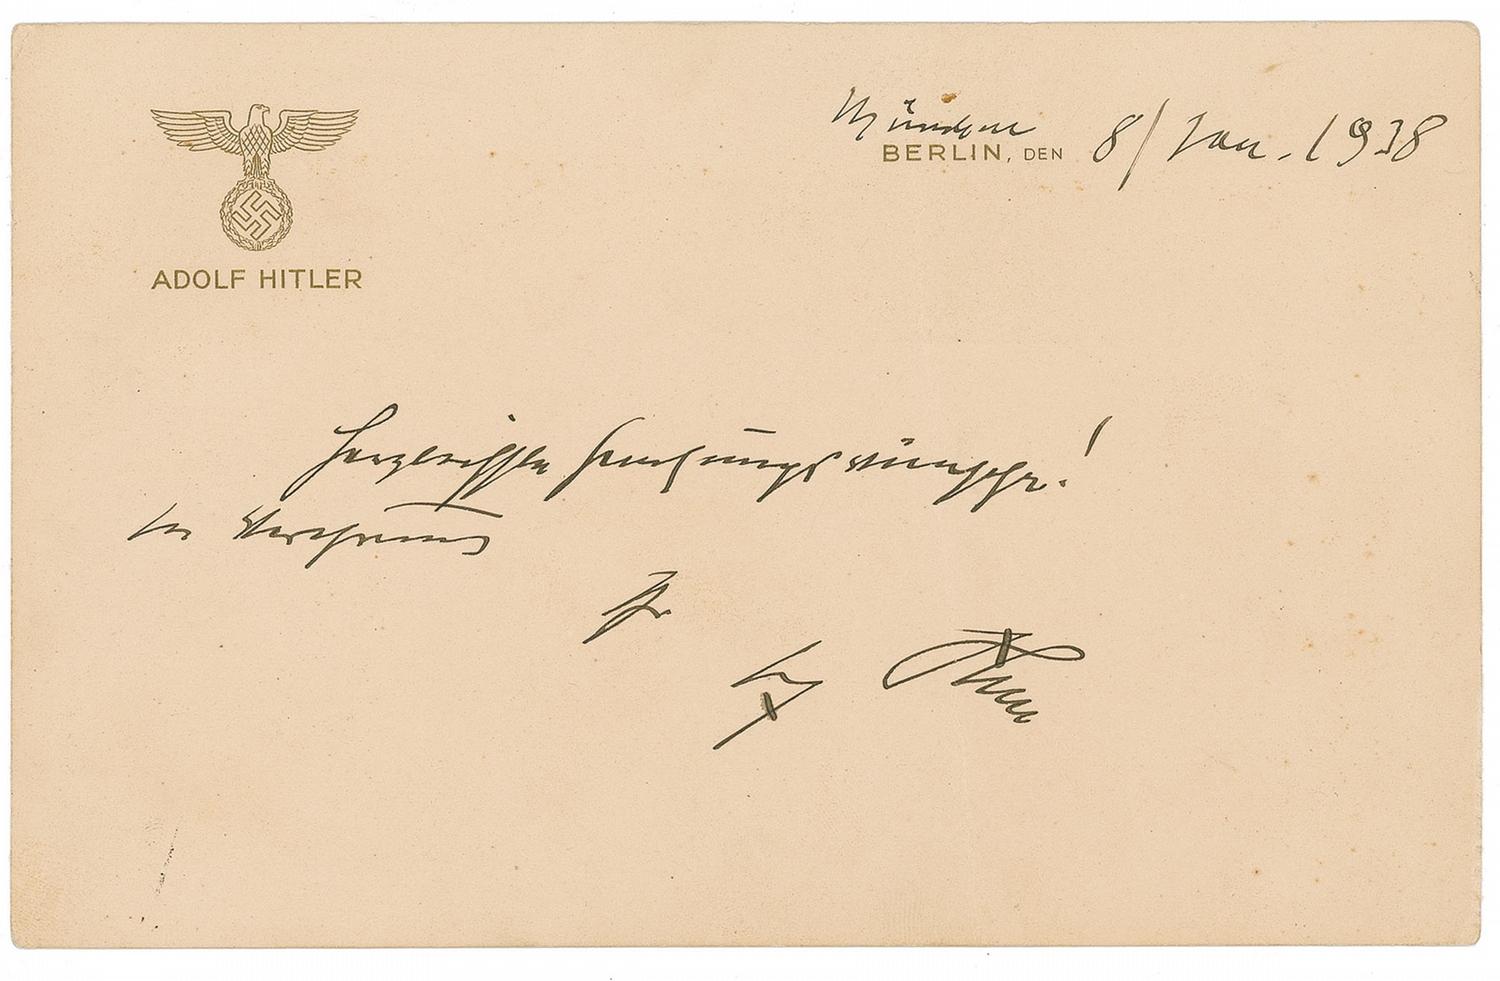 ADOLF HITLER
München
BERLIN, DEN 8/Jan. 1938
Herzlichste Genesungswünsche!
In Verehrung
Ihr